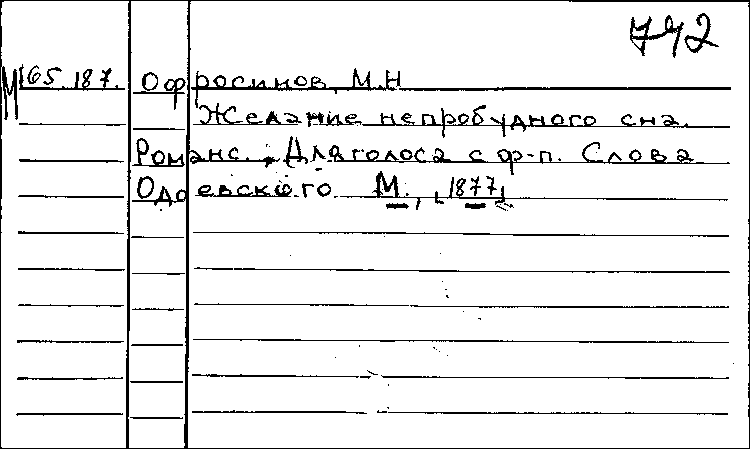 742
М165.187. Офросимов, М.Н
Желание непробудного сна.
Романс. Для голоса с ф-п. Слова
Одоевского М., [1877]